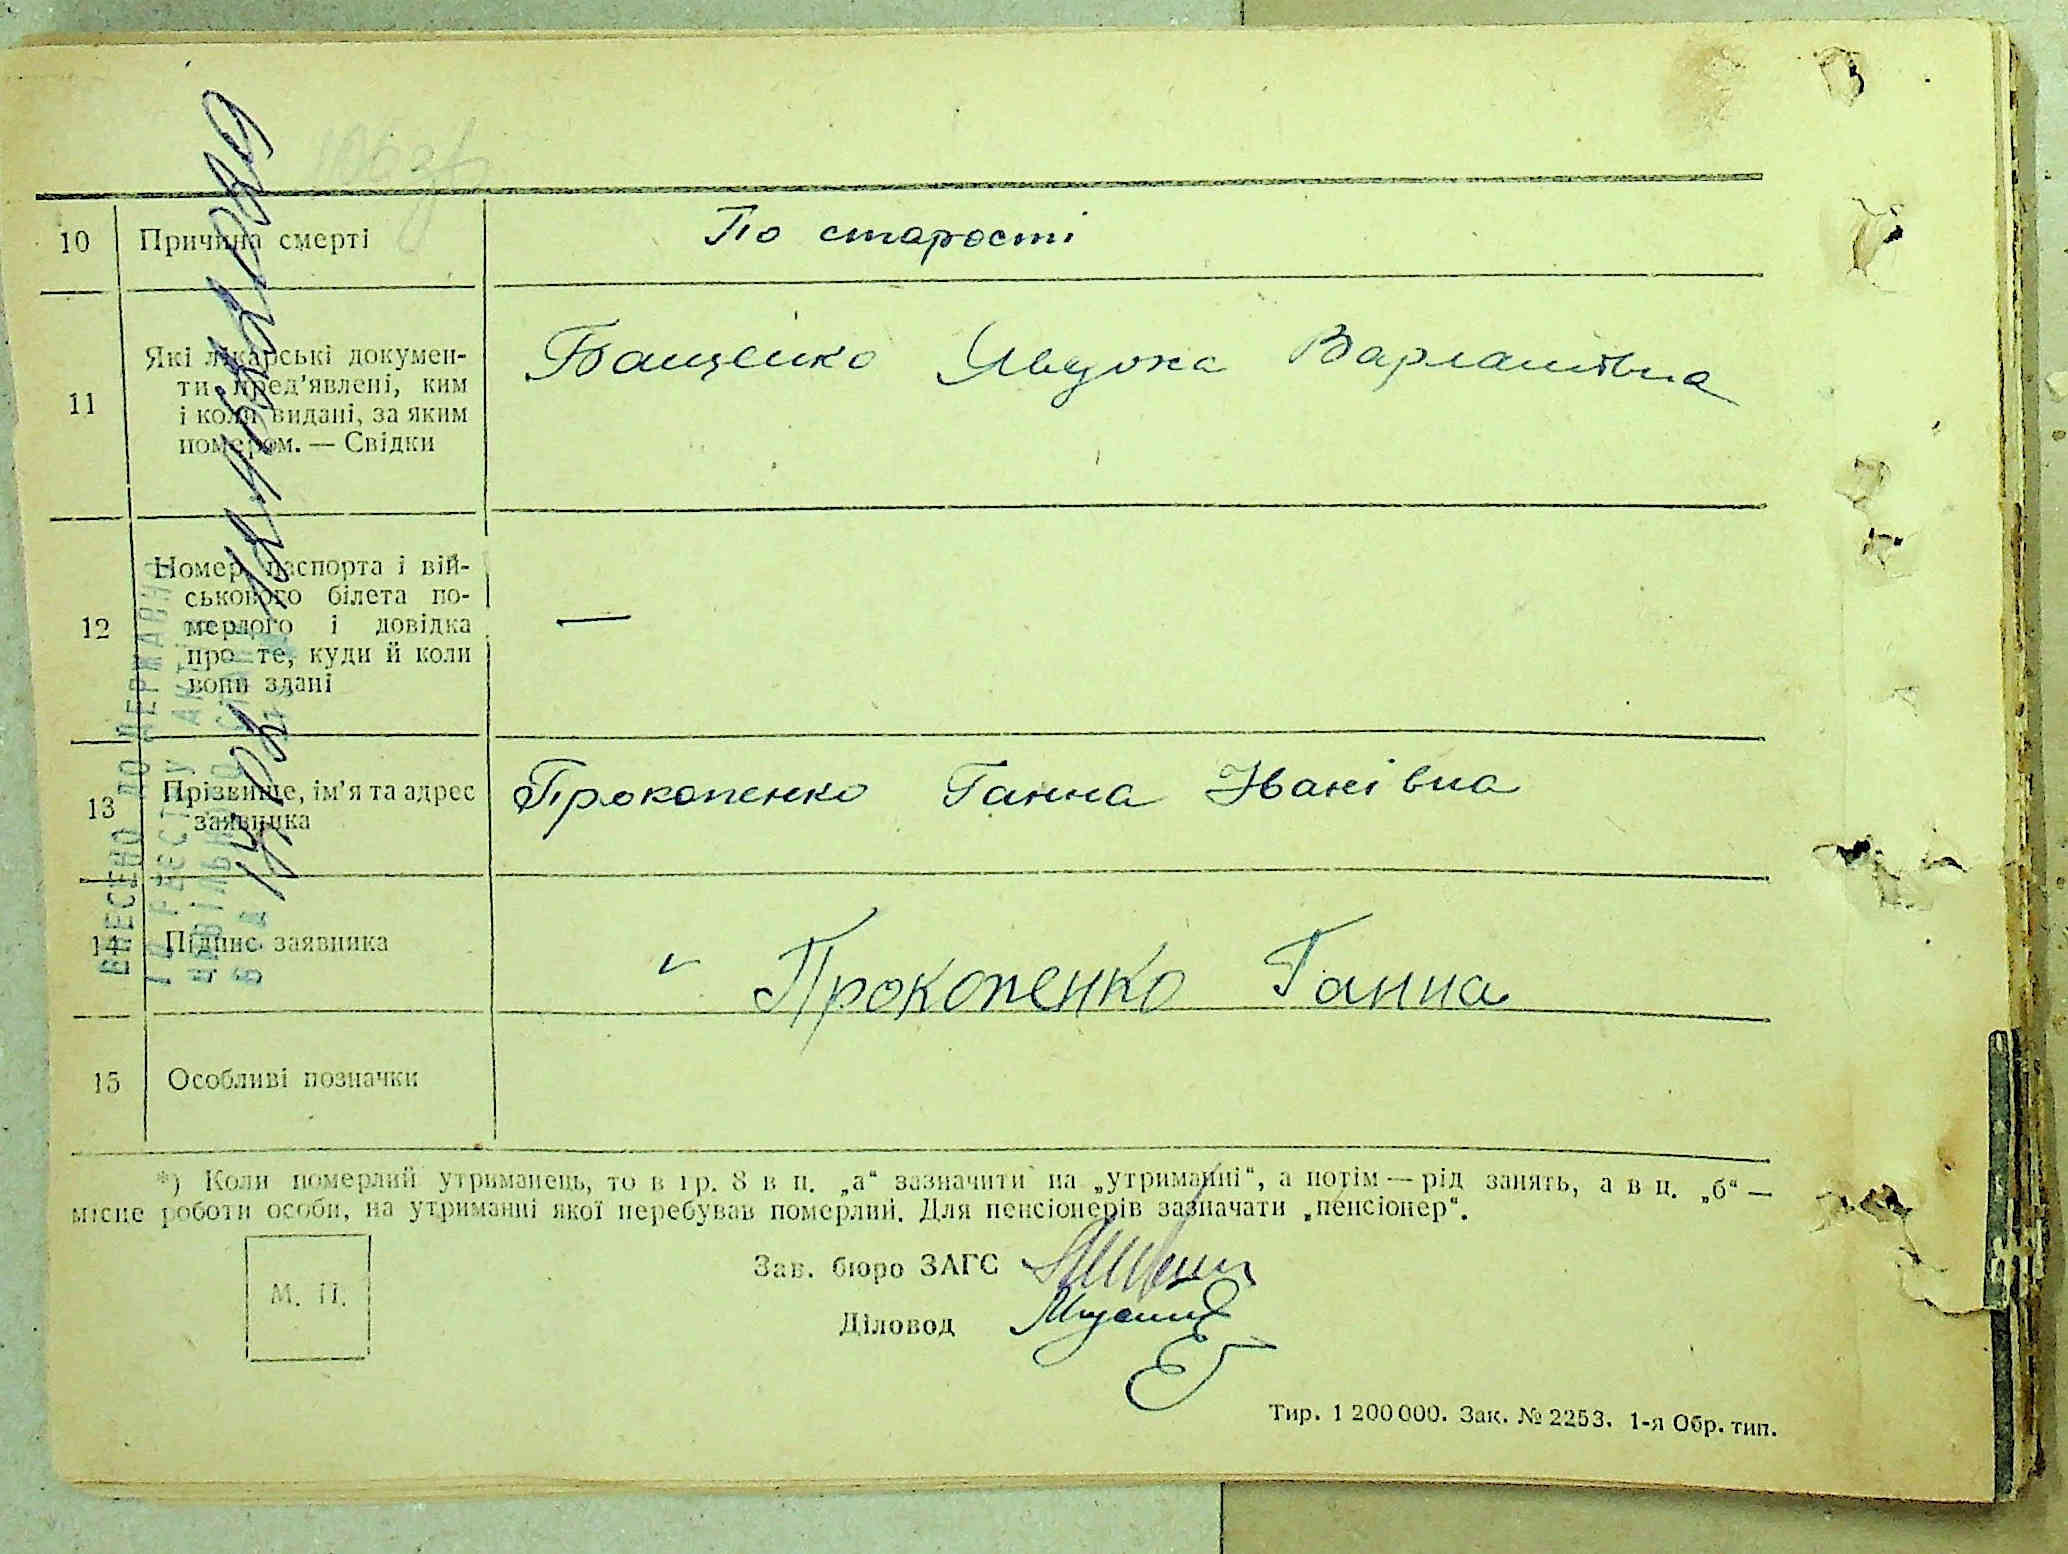 10 Причина смерті По старості
11 Які лікарські докумен-
ти пред'явлені, ким
і коли видані, за яким
номером. — Свідки
Явдоха
12 Номер паспорта і вій-
ськового білета по-
мерлого і довідка
про те, куди й коли
вони здані —
13 Прізвище, ім'я та адрес
заявника
Прокопенко Ганна Іванівна
14 Підпис заявника
Прокопенко Ганна
15 Особливі позначки
*) Коли померлий утриманець, то в гр. 8 в п. „а“ зазначити на „утриманні“, а потім — рід занять, а в п. „б“ —
місце роботи особи, на утриманні якої перебував померлий. Для пенсіонерів зазначати „пенсіонер“.
М. П.
Зав. бюро ЗАГС
Діловод
Тир. 1 200 000. Зак. № 2253. 1-я Обр. тип.
ВНЕСЕНО ДО ДЕРЖАВНО
ГО РЕЄСТУ АКТІВ
ЦИВІЛЬНО